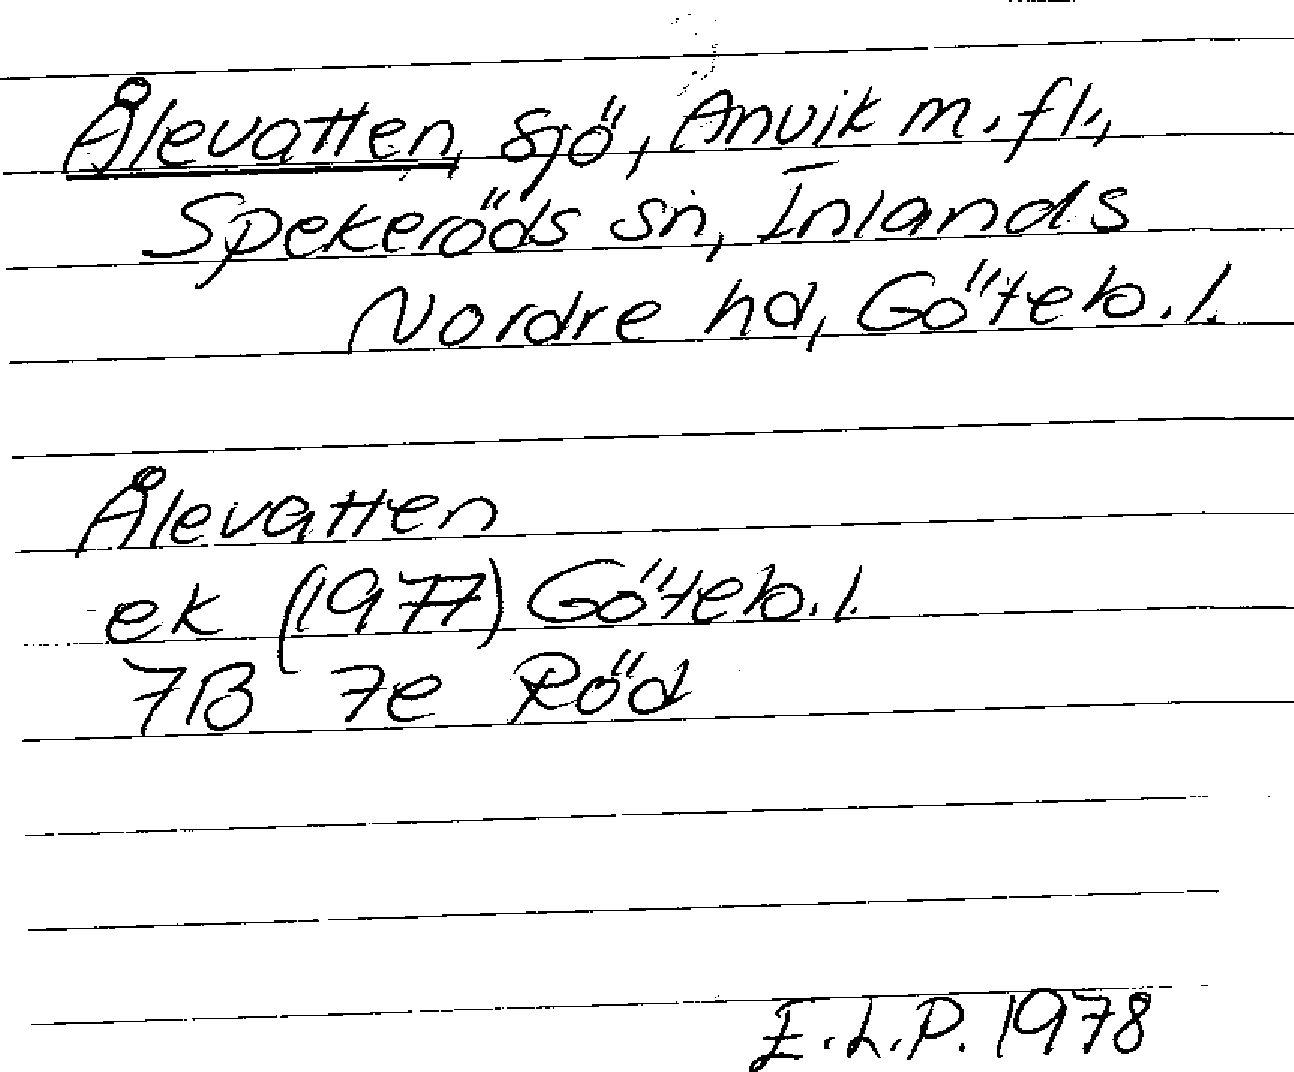 Ålevatten, sjö, Anvik m.fl.,
Spekeröds sn, Inlands
Nordre hd, Göteb.l.
Ålevatten
ek (1977) Göteb.l.
7B 7e Röd
E.L.P. 1978